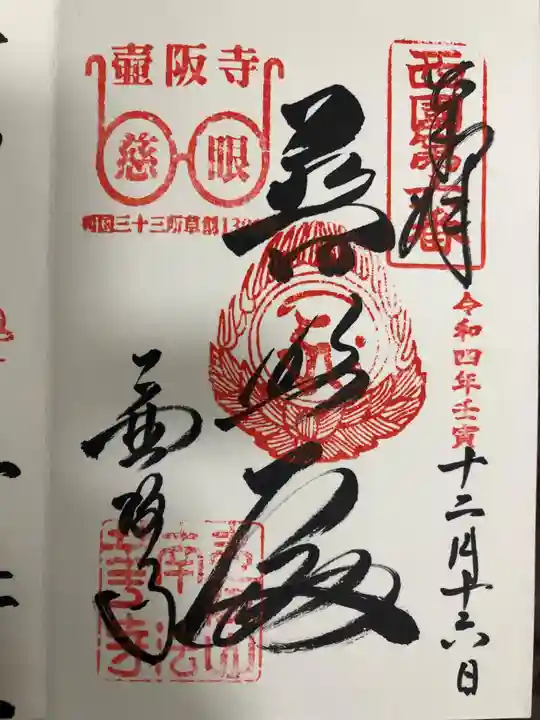 西國第六番
奉拝
令和四年壬寅
十二月十六日
普照殿
壷阪寺
慈眼
西国三十三所草創13
壺阪寺